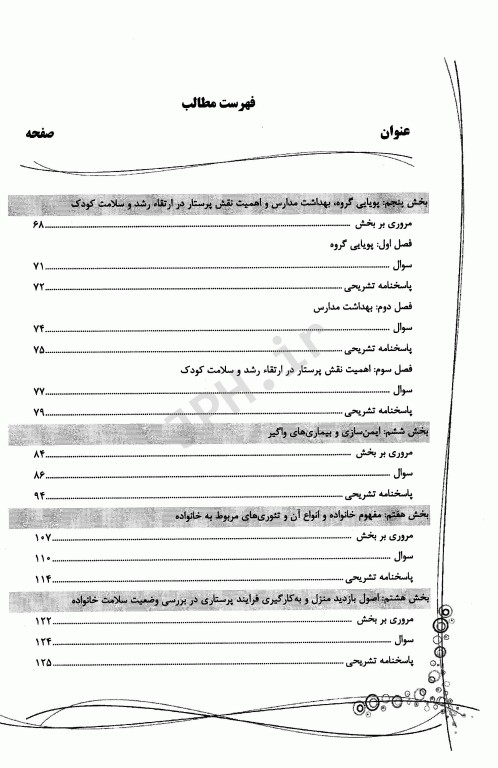 فهرست مطالب
عنوان صفحه
بخش پنجم: پویایی گروه، بهداشت مدارس و اهمیت نقش پرستار در ارتقاء رشد و سلامت کودک
مروری بر بخش ........ ۶۸
فصل اول: پویایی گروه
سوال ........ ۷۱
پاسخنامه تشریحی ........ ۷۲
فصل دوم: بهداشت مدارس
سوال ........ ۷۴
پاسخنامه تشریحی ........ ۷۵
فصل سوم: اهمیت نقش پرستار در ارتقاء رشد و سلامت کودک
سوال ........ ۷۷
پاسخنامه تشریحی ........ ۷۹
بخش ششم: ایمن‌سازی و بیماری‌های واگیر
مروری بر بخش ........ ۸۴
سوال ........ ۸۶
پاسخنامه تشریحی ........ ۹۴
بخش هفتم: مفهوم خانواده و انواع آن و تئوری‌های مربوط به خانواده
مروری بر بخش ........ ۱۰۷
سوال ........ ۱۱۰
پاسخنامه تشریحی ........ ۱۱۴
بخش هشتم: اصول بازدید منزل و به‌کارگیری فرایند پرستاری در بررسی وضعیت سلامت خانواده
مروری بر بخش ........ ۱۲۲
سوال ........ ۱۲۴
پاسخنامه تشریحی ........ ۱۲۵
JPH.ir